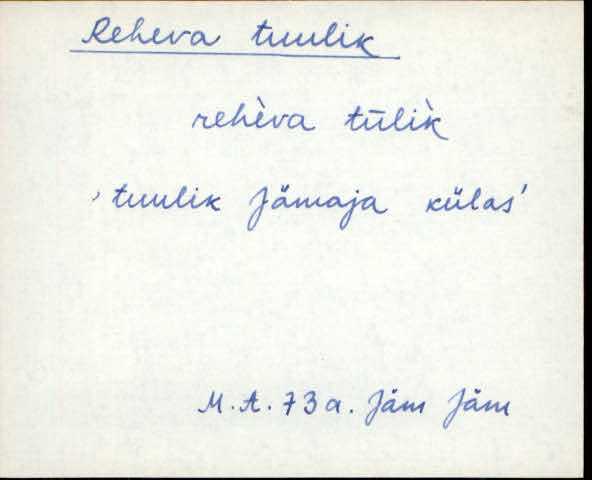 Reheva tuulik
rehèva tūlìk
'tuulik Jämaja külas'
M.A. 73 a. Jäm Jäm